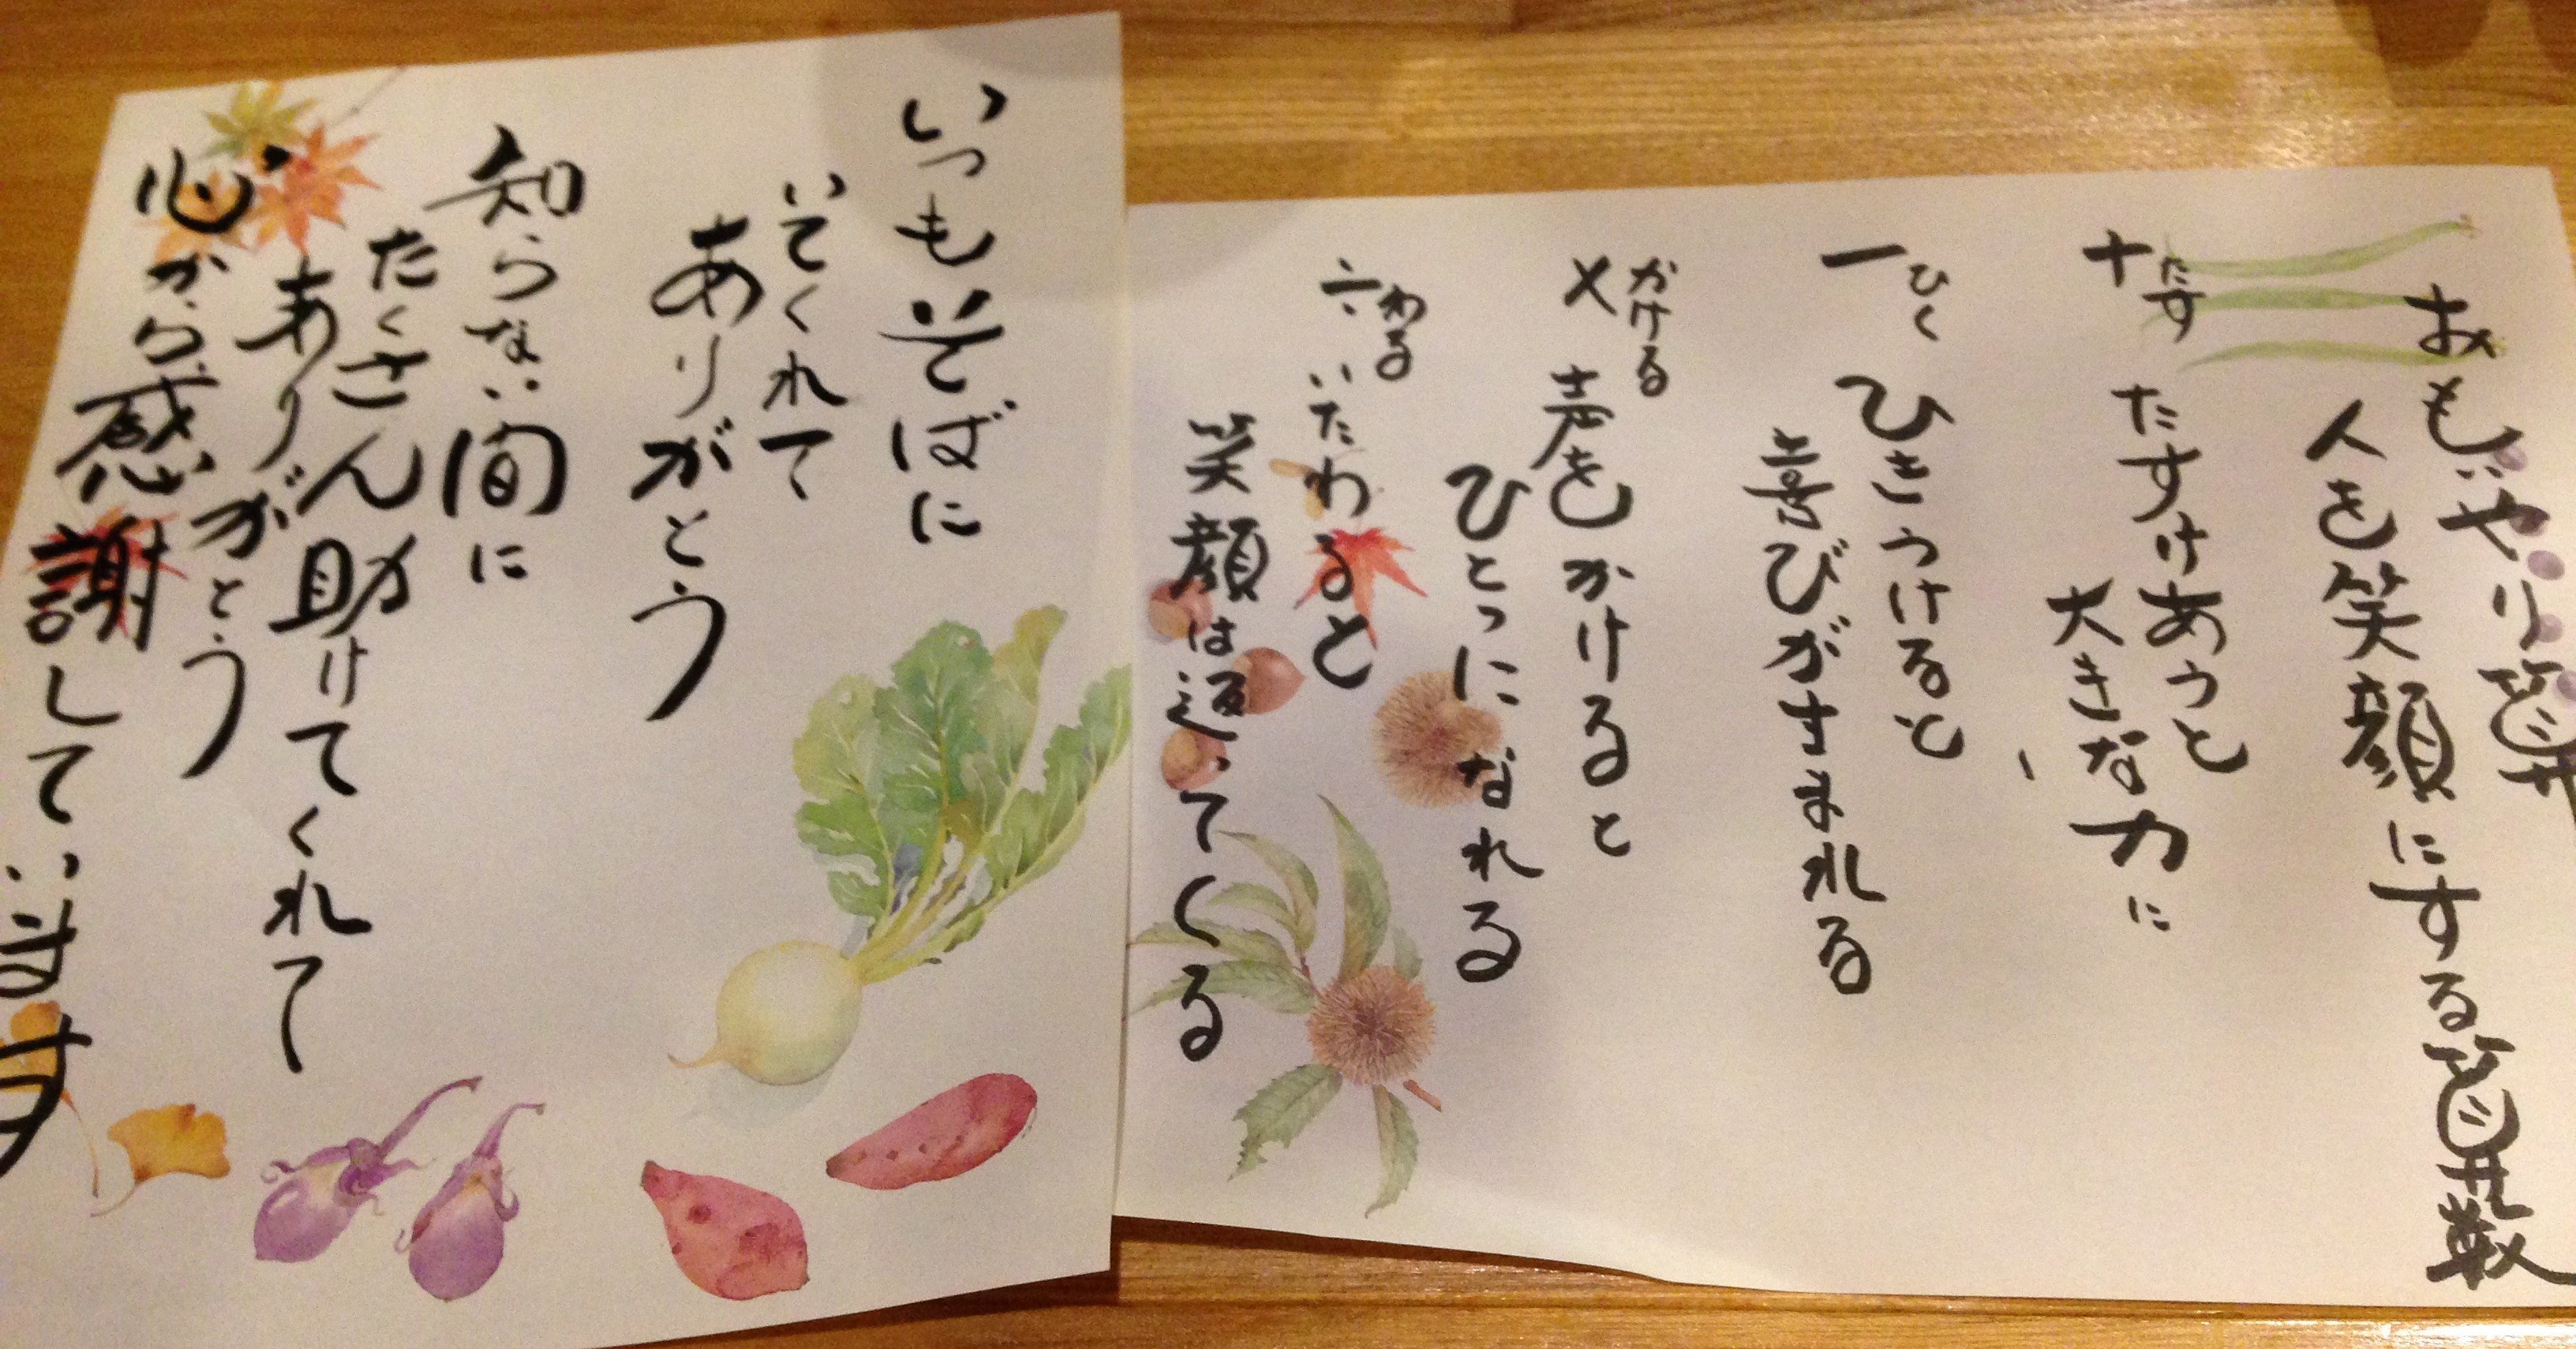 おもいやり算
人を笑顔にする算数
＋たす たすけあうと
大きな力に
－ひく ひきうけると
喜びがうまれる
×かける 声をかけると
ひとつになれる
÷わる いたわると
笑顔は返ってくる
いつもそばに
いてくれて
ありがとう
知らない間に
たくさん助けてくれて
ありがとう
心から感謝しています